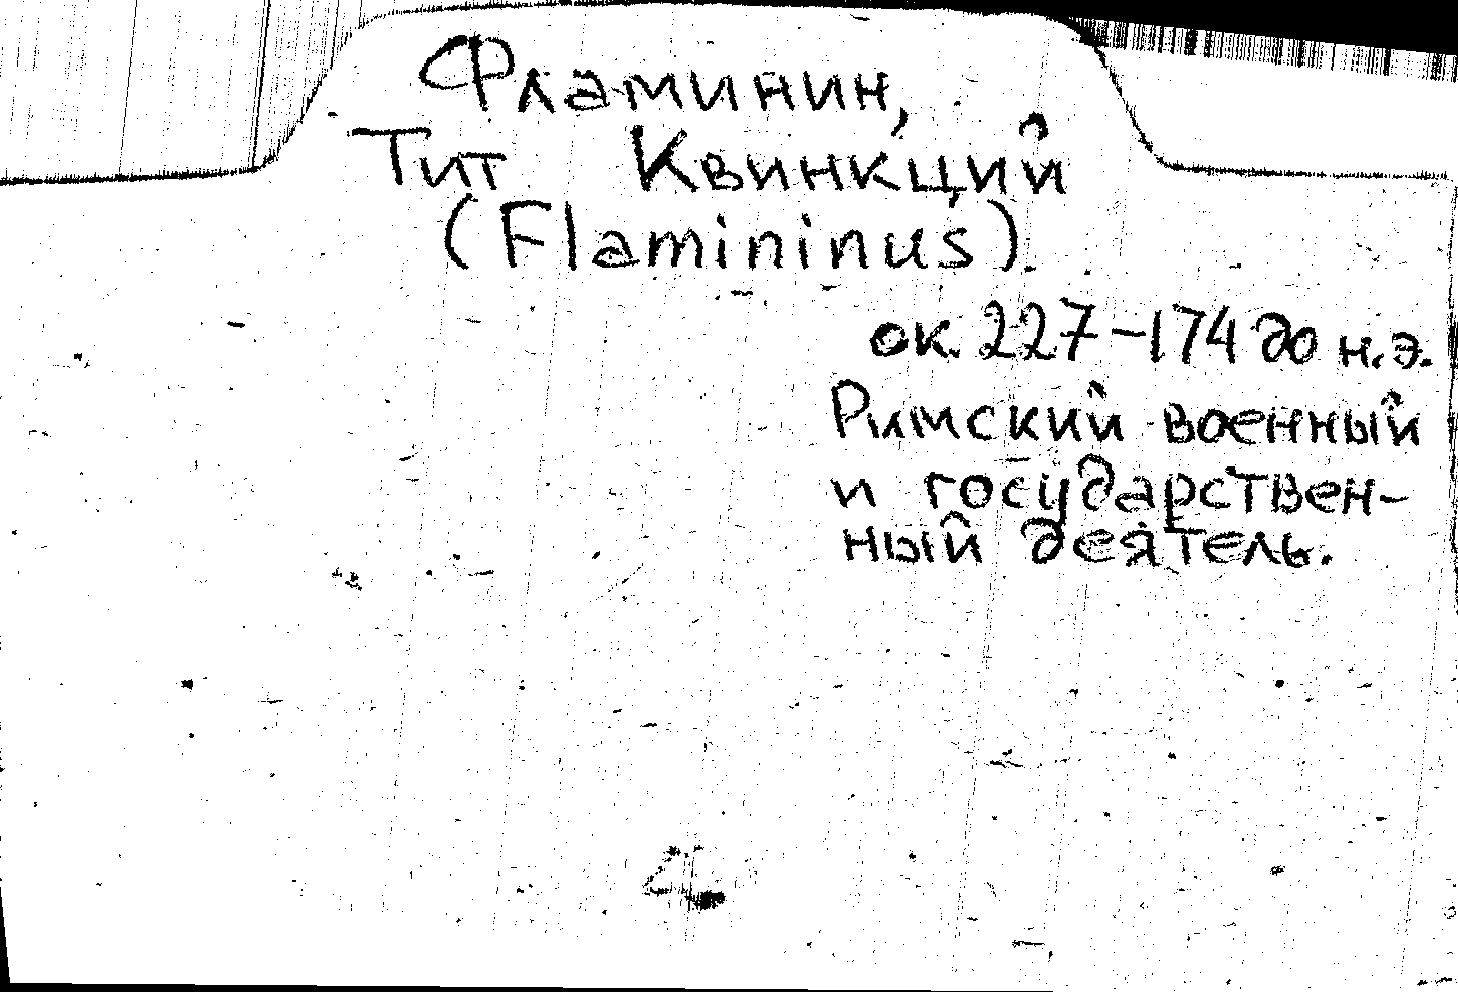 Фламинин,
Тит Квинкций
(Flamininus).
ок. 227-174 до н.э.
Римский военный
и государствен-
ный деятель.